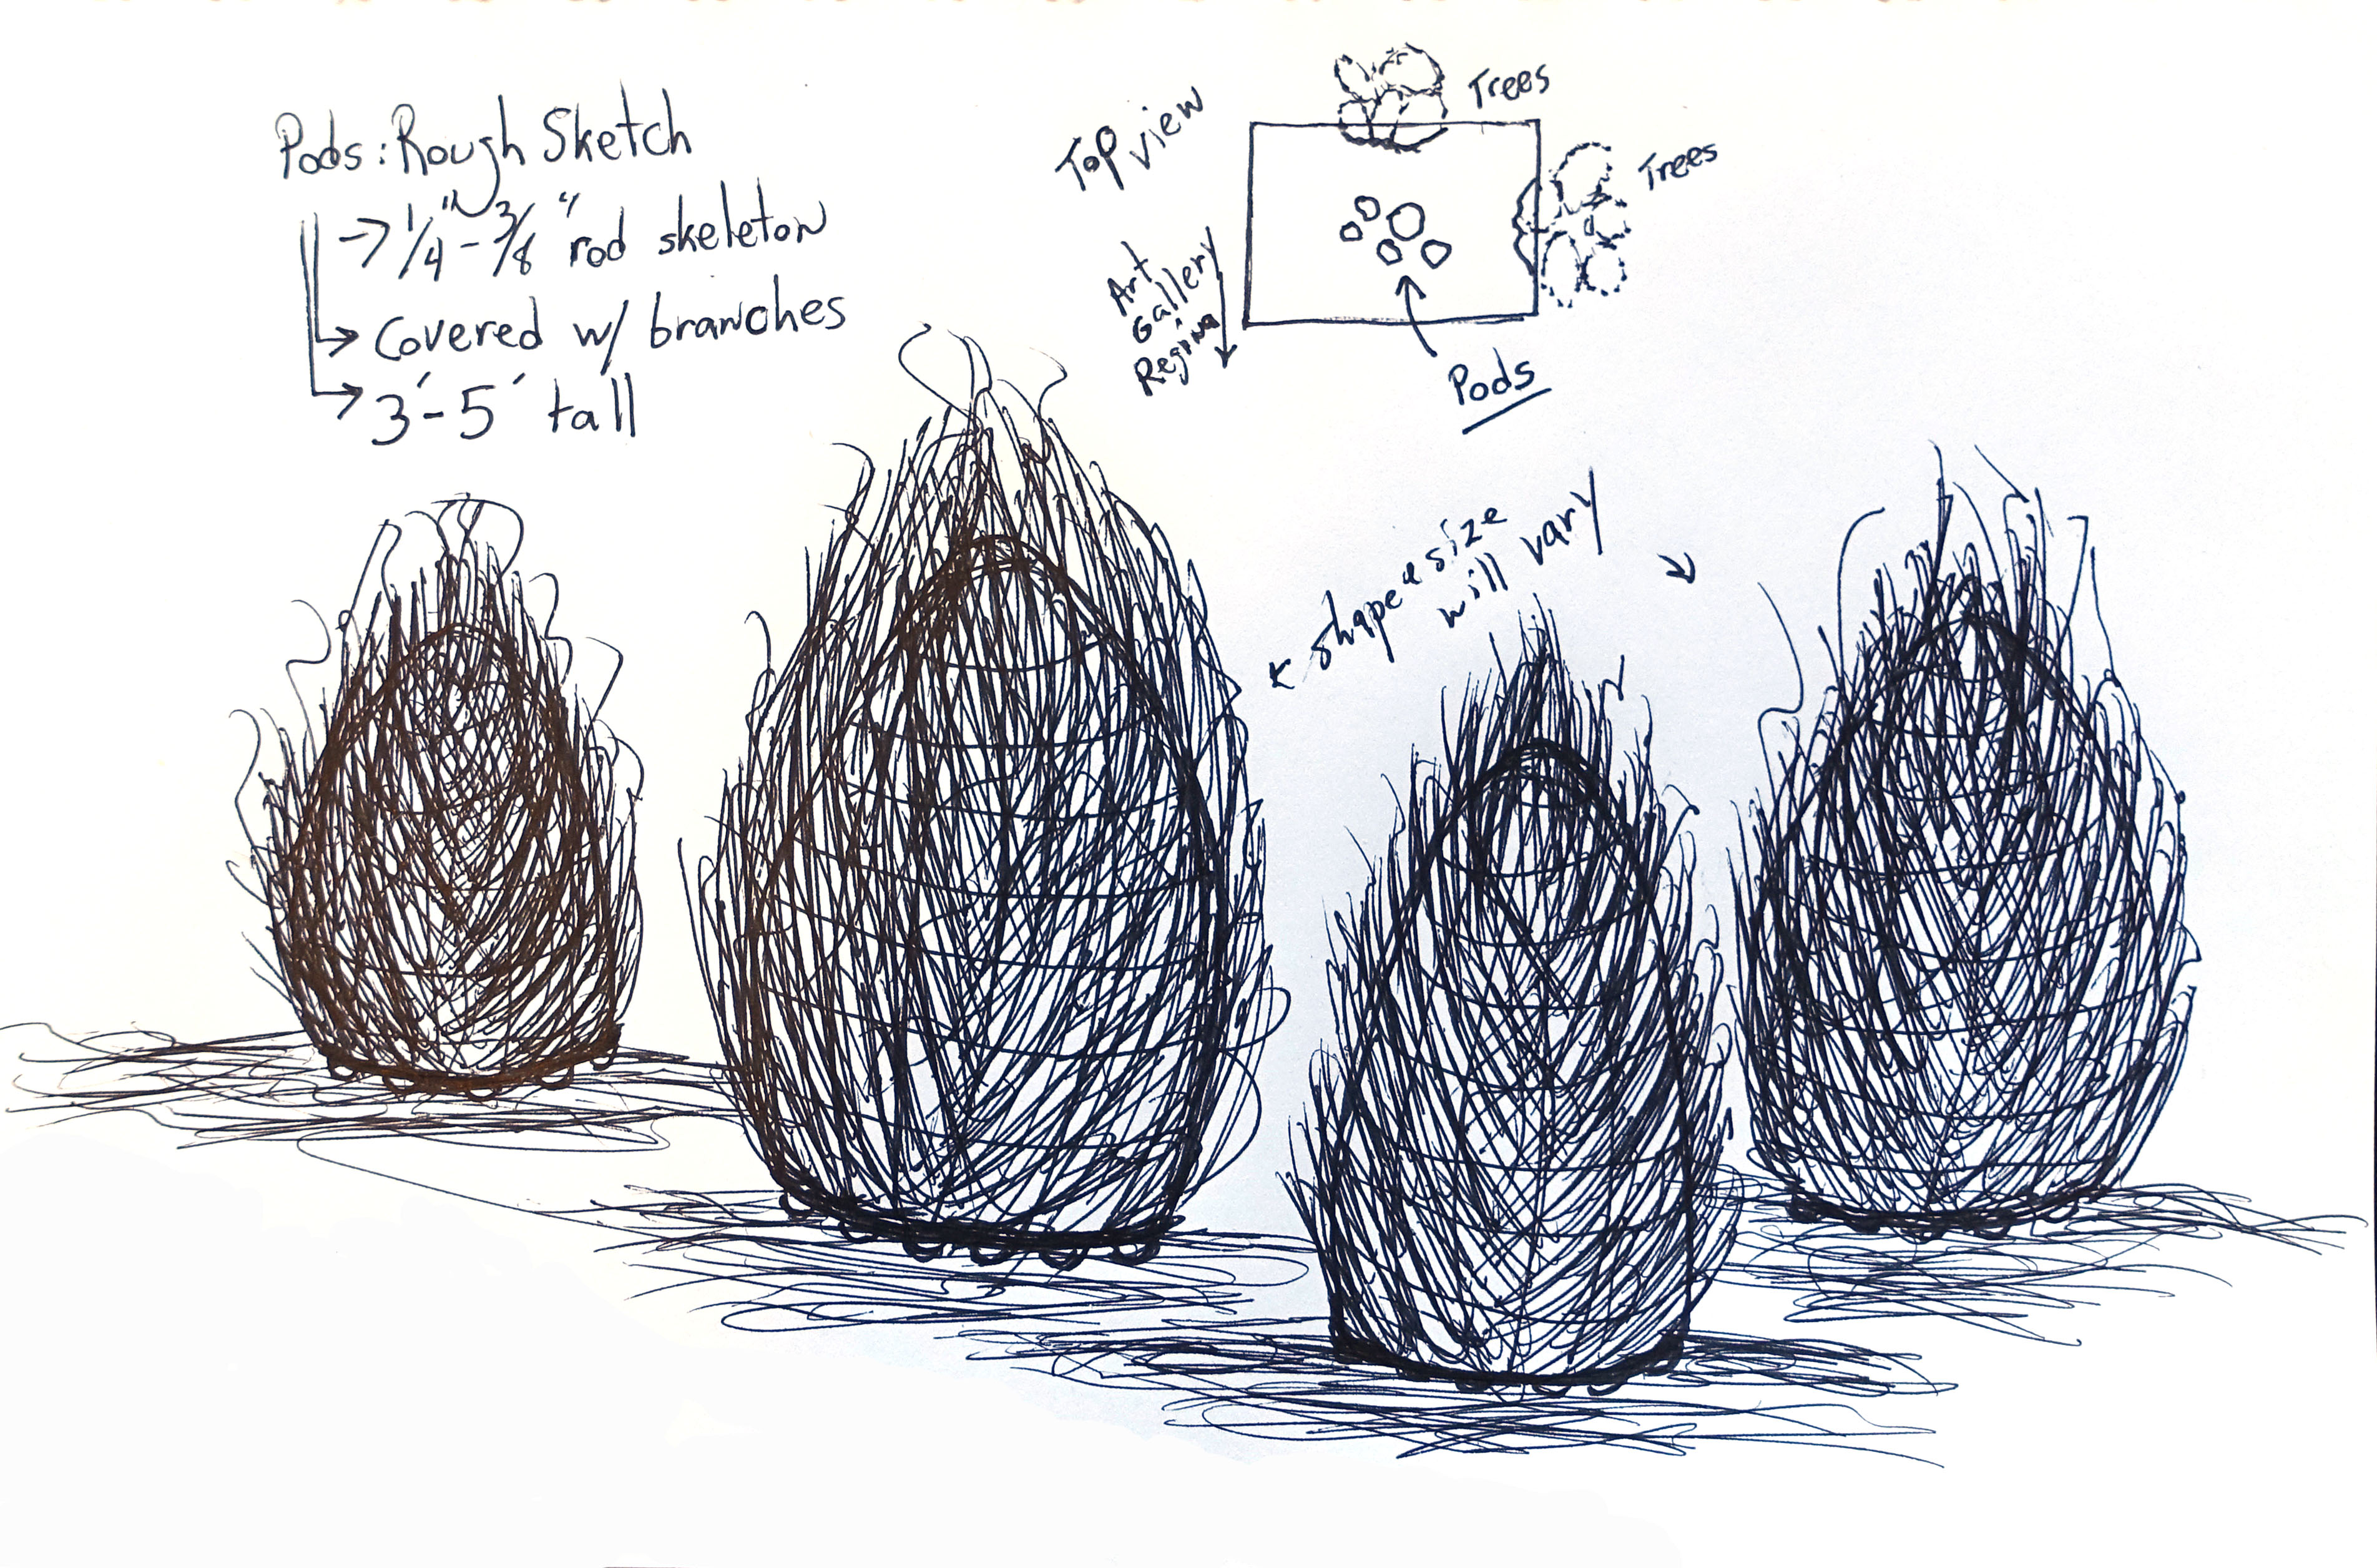 Pods: Rough Sketch
→ 1/4" - 3/8" rod skeleton
→ Covered w/ branches
→ 3' - 5' tall
Top view
Trees
Trees
Art
Gallery
Regina
Pods
shape & size
will vary